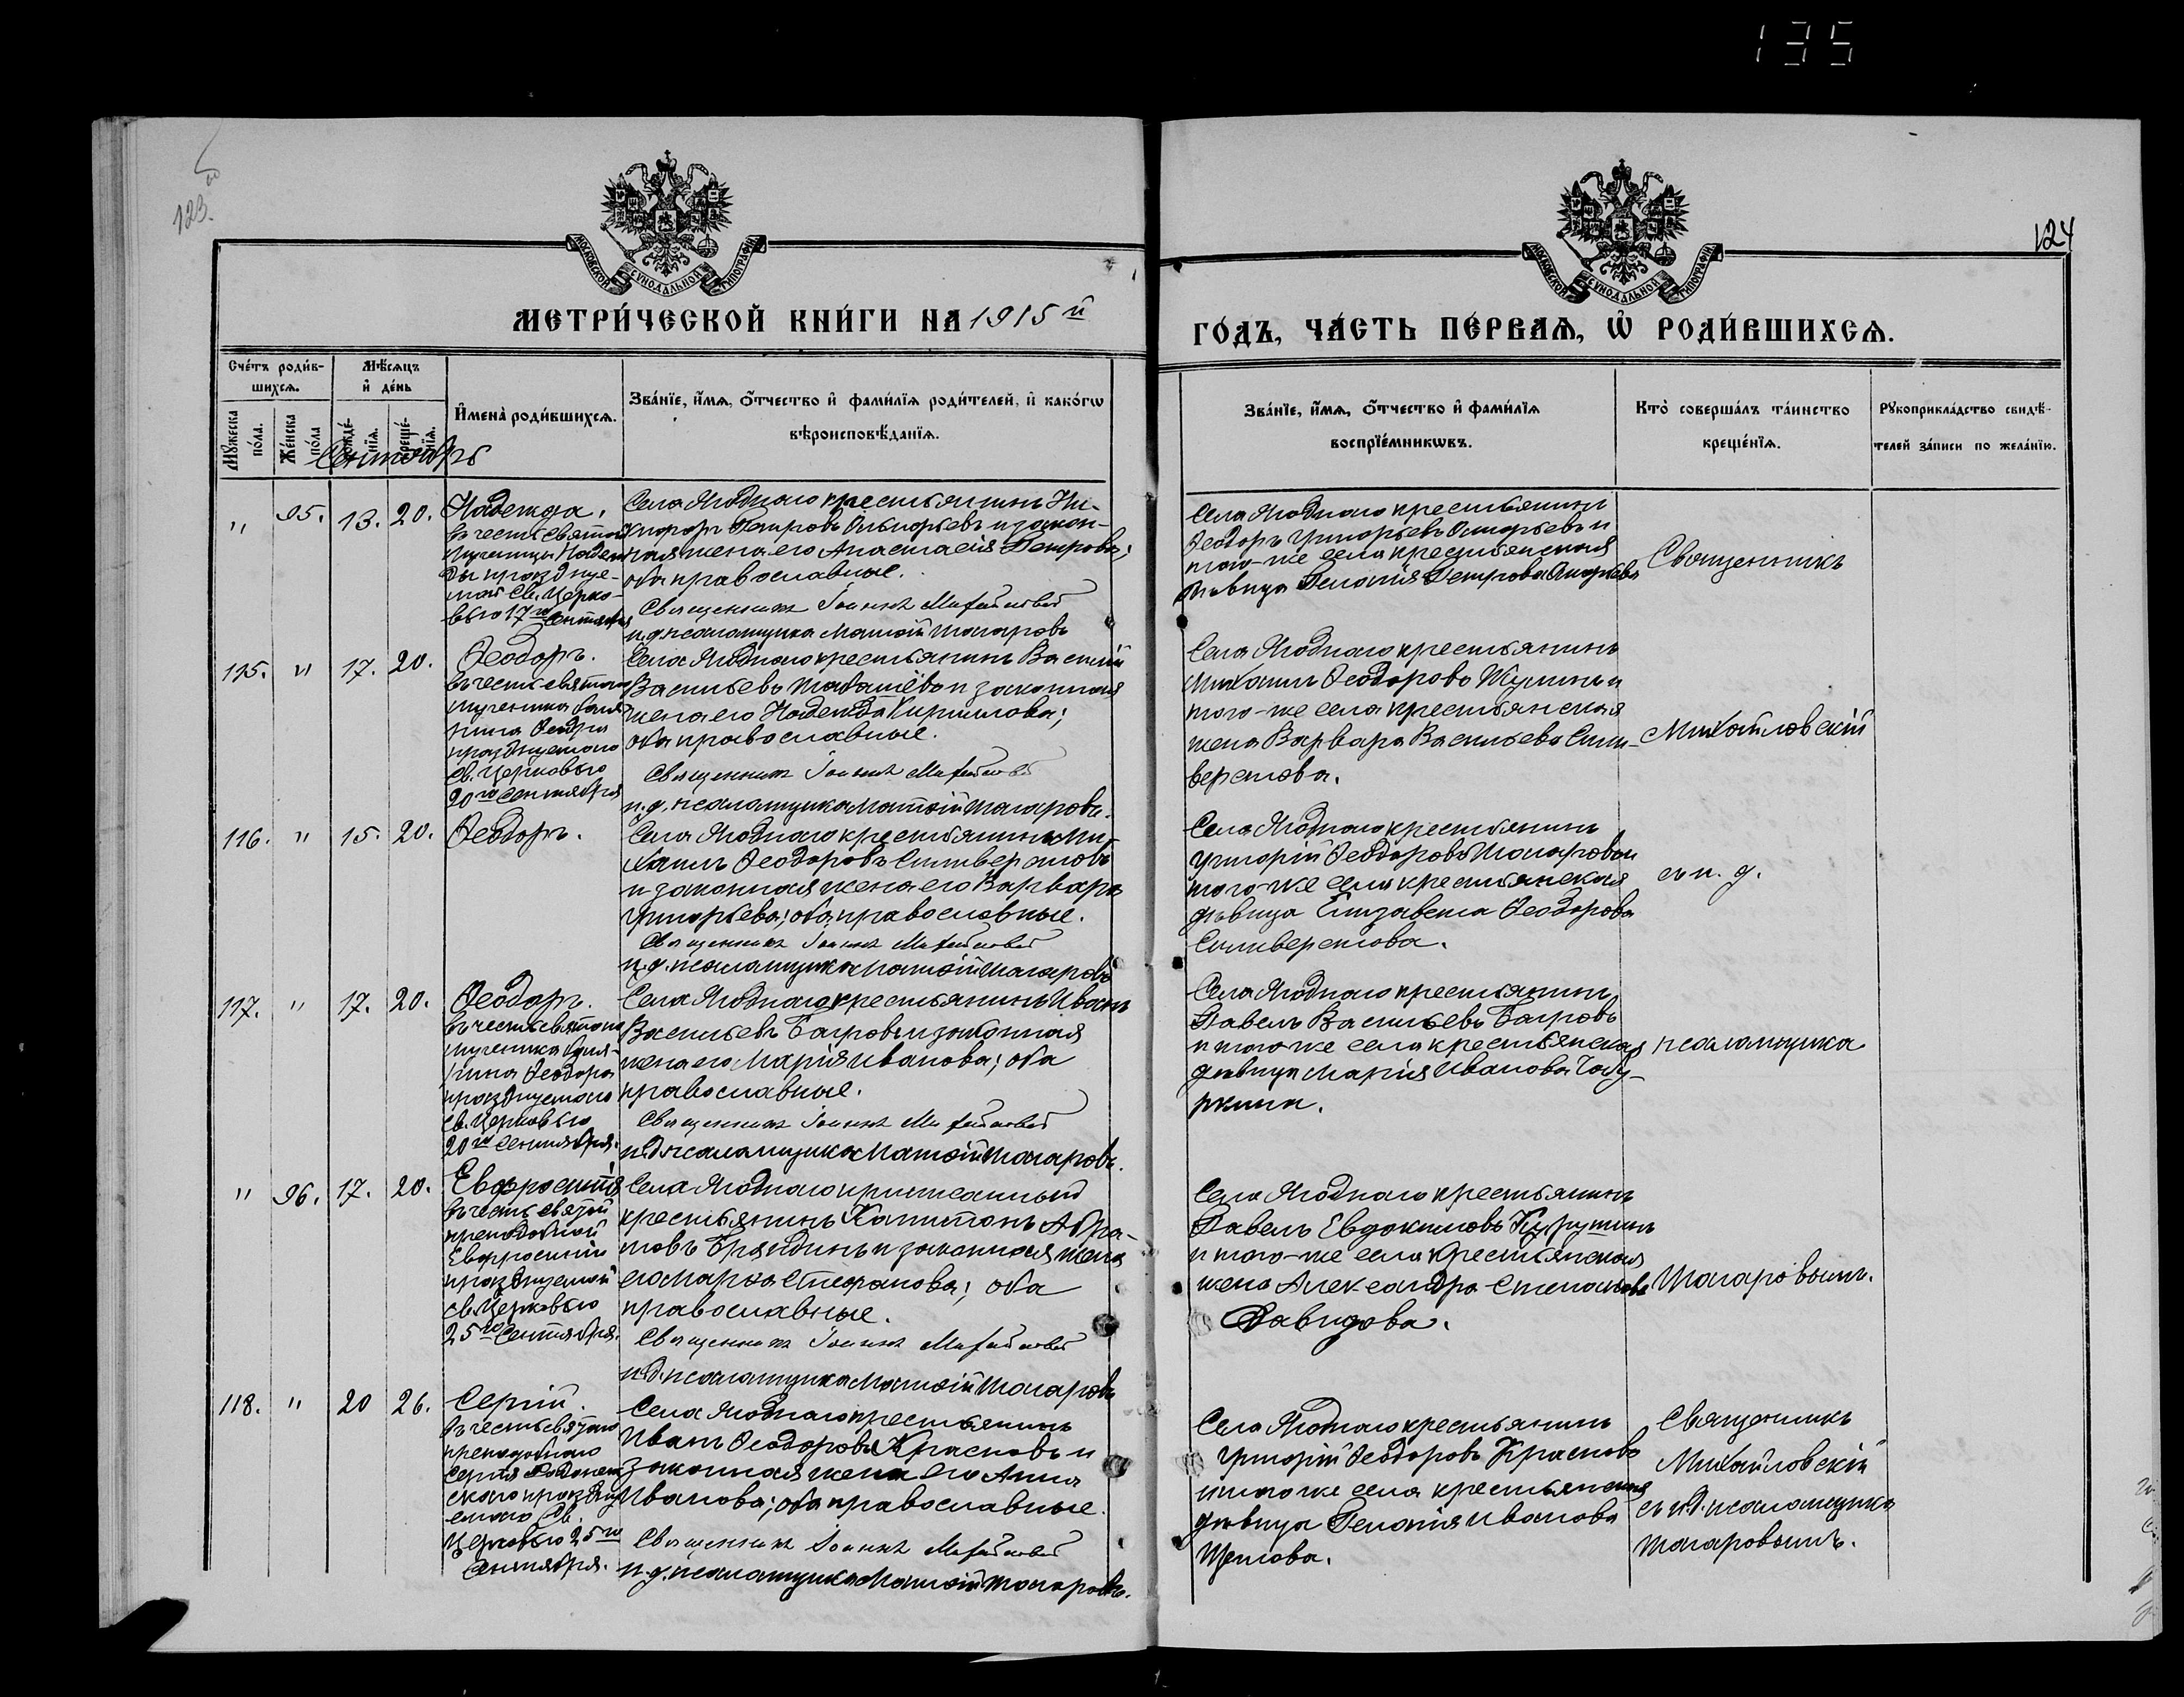 135
123.
124
МОСКОВСКОЙ СѴНОДАЛЬНОЙ ТИПОГРАФІИ
МОСКОВСКОЙ СѴНОДАЛЬНОЙ ТИПОГРАФІИ
МЕТРИ́ЧЕСКОЙ КНИ́ГИ НА 1915 й
ГО́ДЪ, ЧА́СТЬ ПЕ́РВАѦ, Ѡ҆ РОДИ́ВШИХСѦ.
Сче́тъ роди́в-
шихсѧ.
Мѣ́сѧцъ
и҆ де́нь
Мꙋ́жеска
по́ла.
Же́нска
по́ла
рожде́-
нїѧ.
креще́-
нїѧ.
И҆мена̀ роди́вшихсѧ.
Зва́нїе, и҆́мѧ, ѻ҆́тчество и҆ фами́лїѧ роди́телей, и҆ како́гѡ
вѣроисповѣ́данїѧ.
Зва́нїе, и҆́мѧ, ѻ҆́тчество и҆ фами́лїѧ
воспрїе́мникѡвъ.
Кто̀ соверша́лъ та́инство
креще́нїѧ.
Рꙋкоприкла́дство свидѣ́-
телей за́писи по жела́нїю.
Сентябрь
" 95. 13. 20.
Надежда.
въ честь святой
мученицы Надеж
ды праздне-
мой Св. Церко-
вью 17го Сентября
Села Ягоднаго крестьянинъ Ни-
кифоръ Петровъ и закон-
ная жена его Анастасія Петрова;
оба православные.
Священникъ Іоаннъ Михайловскій
и.д. псаломщика Матѳій Макаровъ
Села Ягоднаго крестьянинъ
Ѳеодоръ Григорьевъ и
того-же села крестьянская
дѣвица Пелагія Петрова
Священникъ
115. " 17. 20.
Ѳеодоръ.
въ честь святаго
мученика Боля-
рина Ѳеодора
празднуемаго
св. Церковью
20го Сентября
Села Ягоднаго крестьянинъ Василій
Васильевъ и законная
жена его Надежда Кириллова;
оба православные.
Священникъ Іоаннъ Михайловскій
и.д. псаломщика Матѳій Макаровъ.
Села Ягоднаго крестьянинъ
Михаилъ Ѳеодоровъ и
того-же села крестьянская
жена Варвара Васильева Сили-
верстова.
Михайловскій
116. " 15. 20.
Ѳеодоръ.
Села Ягоднаго крестьянинъ Ми-
хаилъ Ѳеодоровъ Силиверстовъ
и законная жена его Варвара
Григорьева; оба православные.
Священникъ Іоаннъ Михайловскій
и.д. псаломщика Матѳій Макаровъ
Села Ягоднаго крестьянинъ
Григорій Ѳеодоровъ Макаровъ и
того-же села крестьянская
дѣвица Елизавета Ѳеодорова
Силиверстова.
съ и. д.
117. " 17. 20.
Ѳеодоръ.
въ честь святаго
мученика Боля-
рина Ѳеодора
празднуемаго
св. Церковью
20го Сентября.
Села Ягоднаго крестьянинъ Иванъ
Васильевъ Багровъ и законная
жена его Марія Иванова; оба
православные.
Священникъ Іоаннъ Михайловскій
и.д. псаломщика Матѳій Макаровъ.
Села Ягоднаго крестьянинъ
Павелъ Васильевъ Багровъ
и того-же села крестьянская
дѣвица Марія Иванова
псаломщика
" 96. 17. 20.
Евфросинія
въ честь святой
преподобной
Евфросиніи
празднуемой
св. Церковью
25го Сентября.
Села Ягоднаго приписанный
крестьянинъ Капитонъ Абра-
мовъ и законная жена
его Марѳа Стефанова; оба
православные.
Священникъ Іоаннъ Михайловскій
и.д. псаломщика Матѳій Макаровъ
Села Ягоднаго крестьянинъ
Павелъ Евдокимовъ
и того-же села крестьянская
жена Александра Степанова
Давидова.
Макаровымъ.
118. " 20 26.
Сергій.
въ честь святаго
преподобнаго
Сергія Радонеж
скаго праздну
емаго Св.
Церковью 25го
Сентября.
Села Ягоднаго крестьянинъ
Иванъ Ѳеодоровъ Красновъ и
законная жена его Анна
Иванова; оба православные.
Священникъ Іоаннъ Михайловскій
и.д. псаломщика Матѳій Макаровъ.
Села Ягоднаго крестьянинъ
Григорій Ѳеодоровъ Красновъ
и того же села крестьянская
дѣвица Пелагія Иванова
Священникъ
Михайловскій
съ и.д. псаломщика
Макаровымъ.